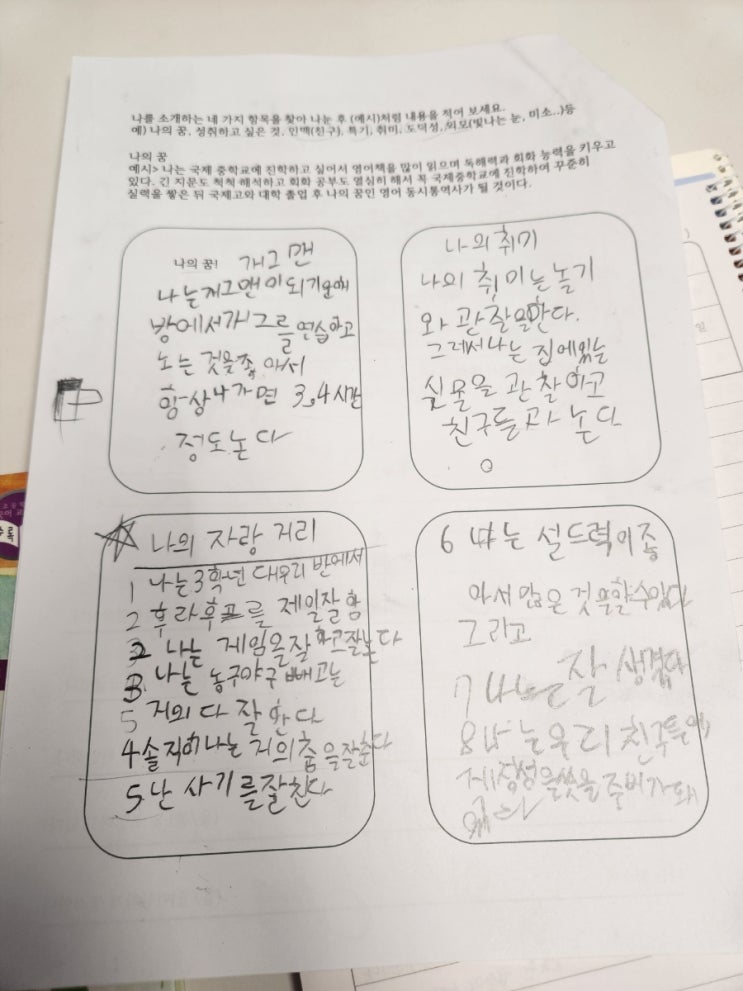 나를 소개하는 네 가지 항목을 찾아 나눈 후 (예시)처럼 내용을 적어 보세요.
예) 나의 꿈, 성취하고 싶은 것, 인맥(친구), 특기, 취미, 도덕성, 외모(빛나는 눈, 미소..)등
나의 꿈
예시> 나는 국제 중학교에 진학하고 싶어서 영어책을 많이 읽으며 독해력과 회화 능력을 키우고
있다. 긴 지문도 척척 해석하고 회화 공부도 열심히 해서 꼭 국제중학교에 진학하여 꾸준히
실력을 쌓은 뒤 국제고와 대학 졸업 후 나의 꿈인 영어 동시통역사가 될 것이다.
나의 꿈! 개그맨
나는개그맨이되기위해
방에서개그를연습하고
노는것을좋아서
항상나가면 3,4시간
정도논다
나의 취미
나의 취미는놀기
와 관찰을한다.
그레서나는 집에있는
실물을 관찰하고
친구들과 논다
☆ 나의 자랑 거리
1 나는3학년 대우리 반에서
2 후라후프를 제일잘함
2 나는 게임을잘하고잘논다
3. 나는 농구야구빼고는
5 거의다잘한다
4솔직히나는거의춤을잘춘다
5난 사기를잘친다
6 나는 설드력이좋
아서 많은 것을할수있다
그리고
7 나는 잘 생겼다
8 나는우리 친구들에